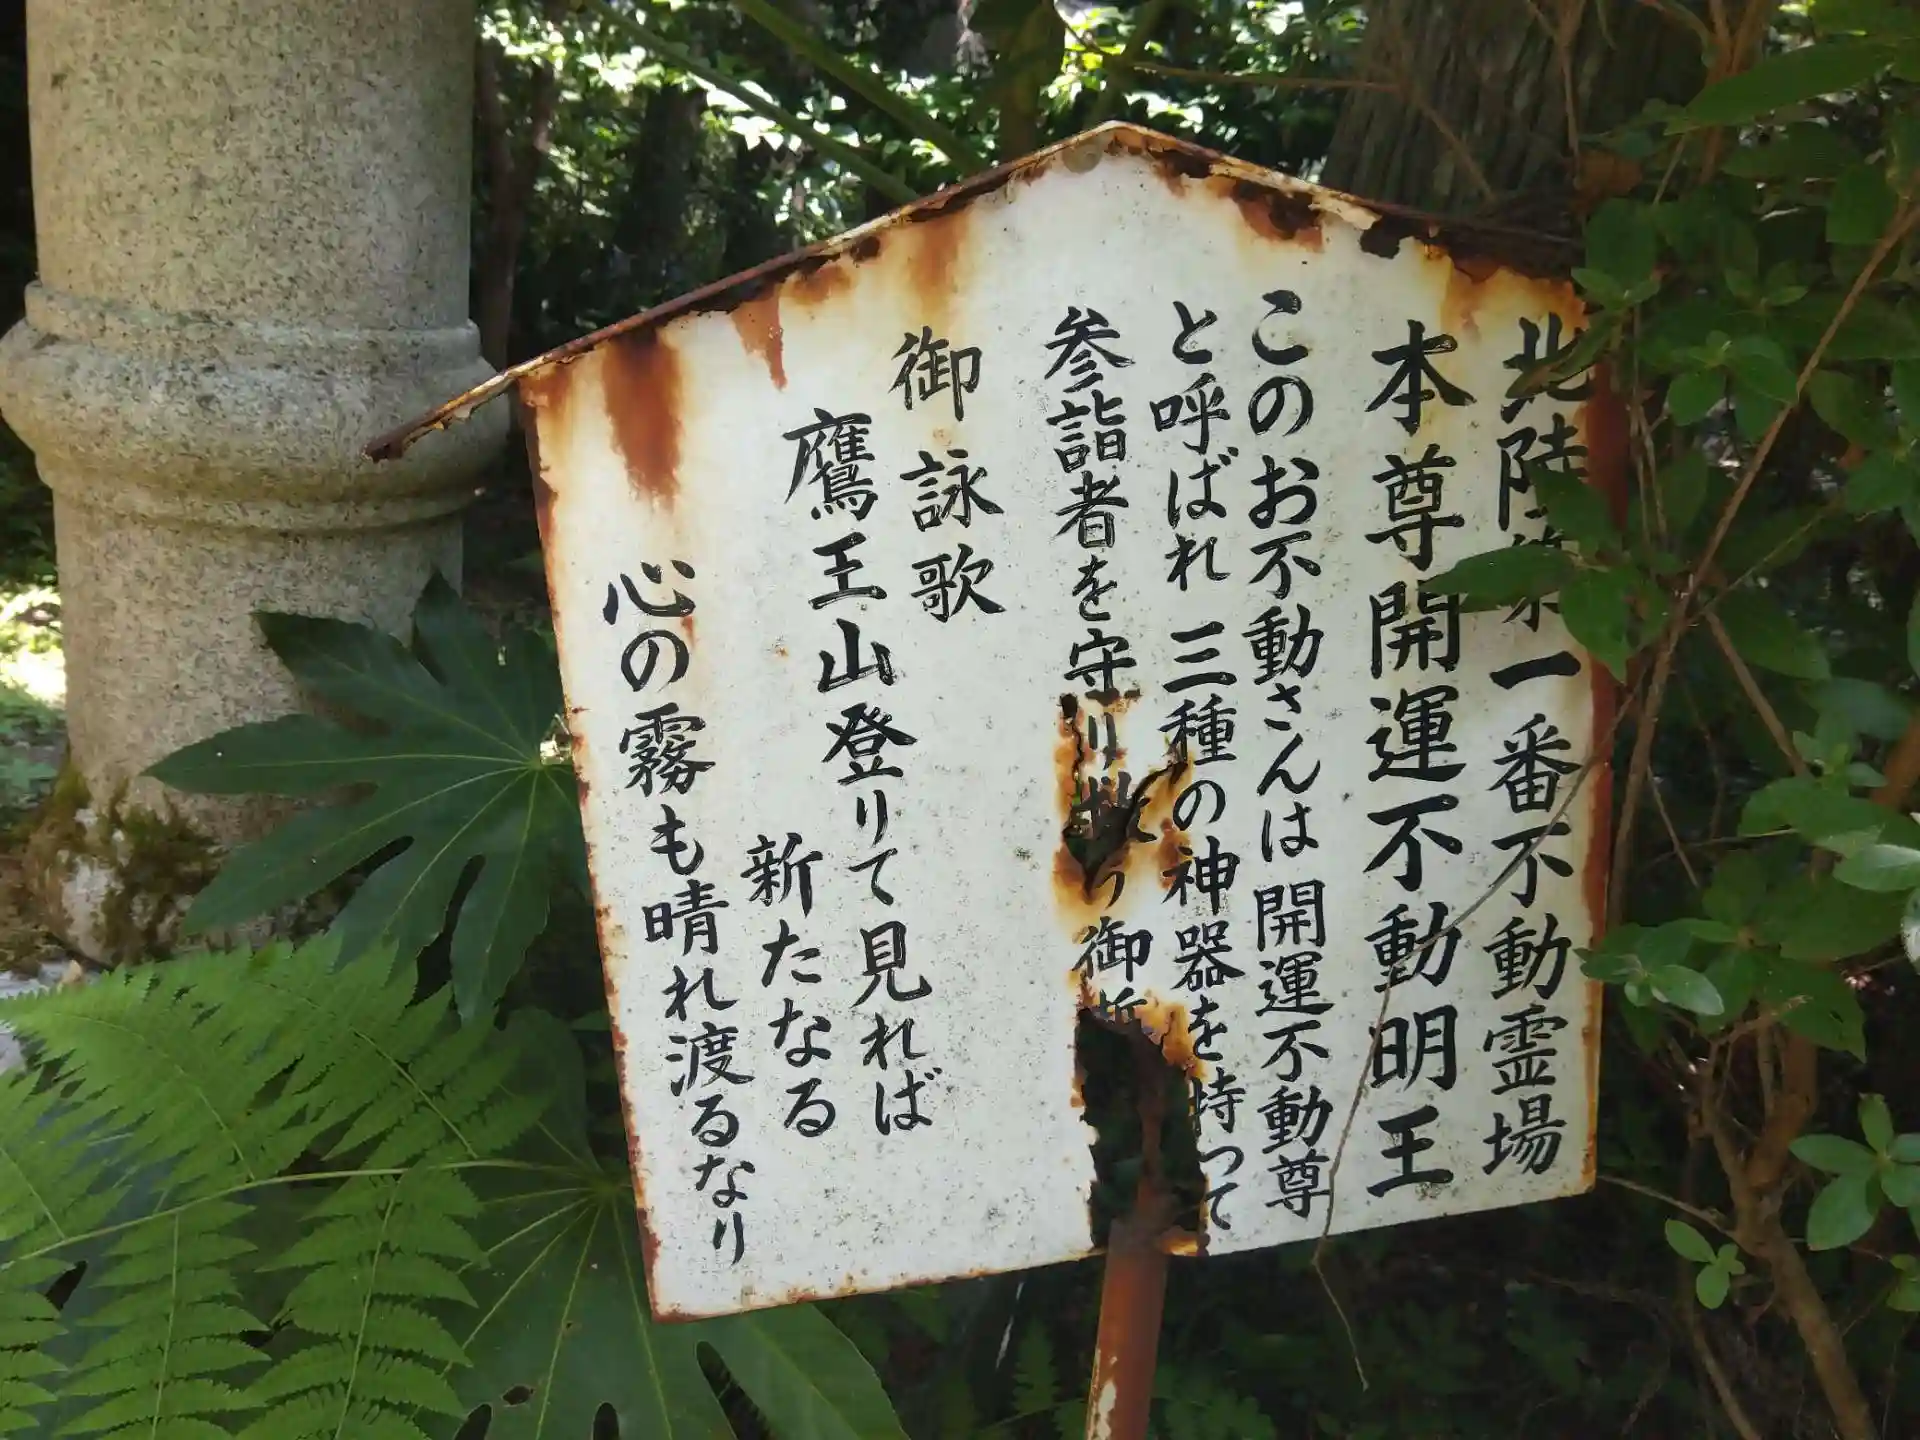 北陸第一番不動霊場
本尊開運不動明王
このお不動さんは開運不動尊
と呼ばれ三種の神器を持って
参詣者を守り 御
御詠歌
鷹王山登りて見れば
新たなる
心の霧も晴れ渡るなり